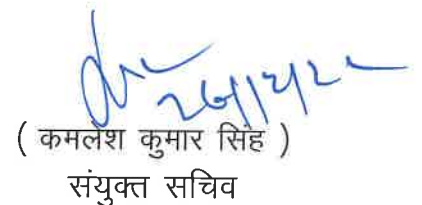 ( कमलेश कुमार सिंह )
संयुक्त सचिव